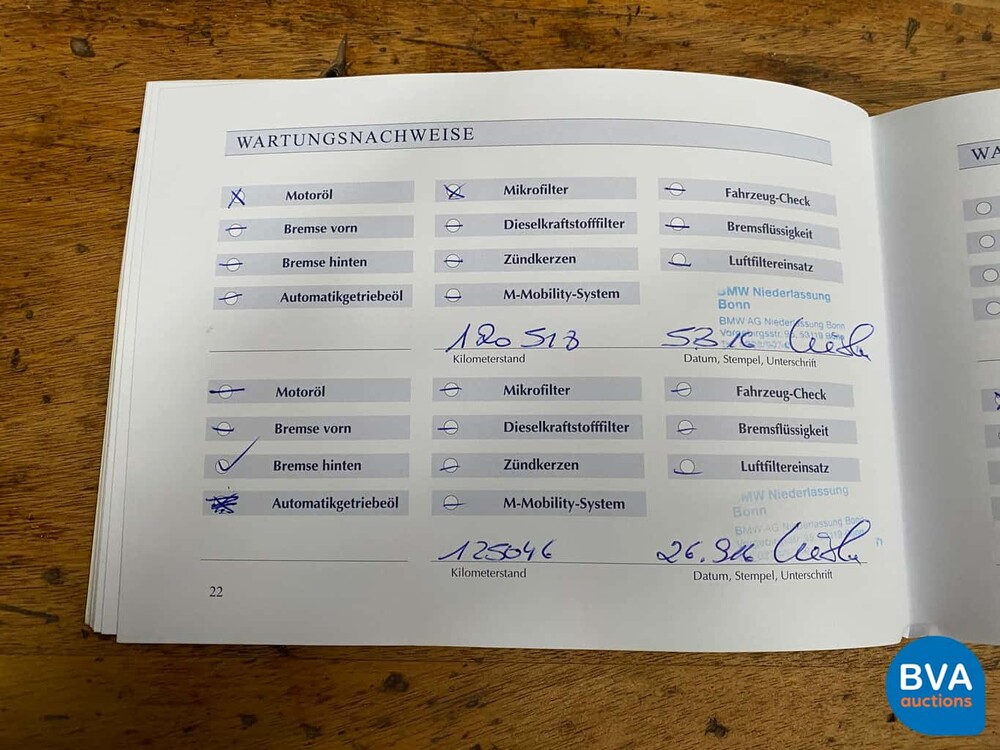 WARTUNGSNACHWEISE
Motoröl Mikrofilter Fahrzeug-Check
Bremse vorn Dieselkraftstofffilter Bremsflüssigkeit
Bremse hinten Zündkerzen Luftfiltereinsatz
Automatikgetriebeöl M-Mobility-System
BMW Niederlassung
Bonn
BMW AG Niederlassung Bonn
120518 5.8.16
Kilometerstand Datum, Stempel, Unterschrift
Motoröl Mikrofilter Fahrzeug-Check
Bremse vorn Dieselkraftstofffilter Bremsflüssigkeit
Bremse hinten Zündkerzen Luftfiltereinsatz
Automatikgetriebeöl M-Mobility-System
BMW Niederlassung
Bonn
BMW AG Niederlassung Bonn
125046 26.9.16
Kilometerstand Datum, Stempel, Unterschrift
22
WA
BVA
auctions